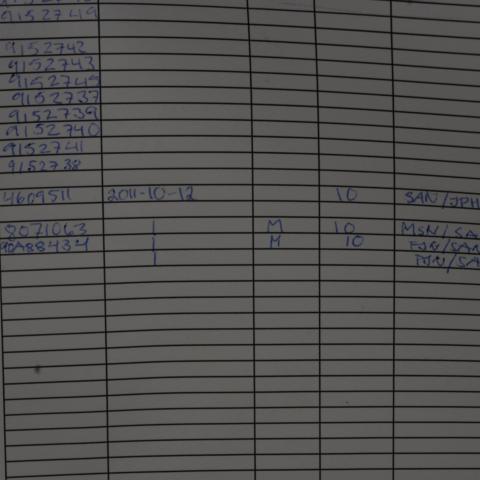 9152749
9152742
9152743
9152745
9152737
9152739
9152740
9152741
9152738
4609511 2011-10-12 10 SAN/JPH
8071063 | M 10 MSN/SA
90A88434 | M 10 FJN/SAN
| FJN/SA